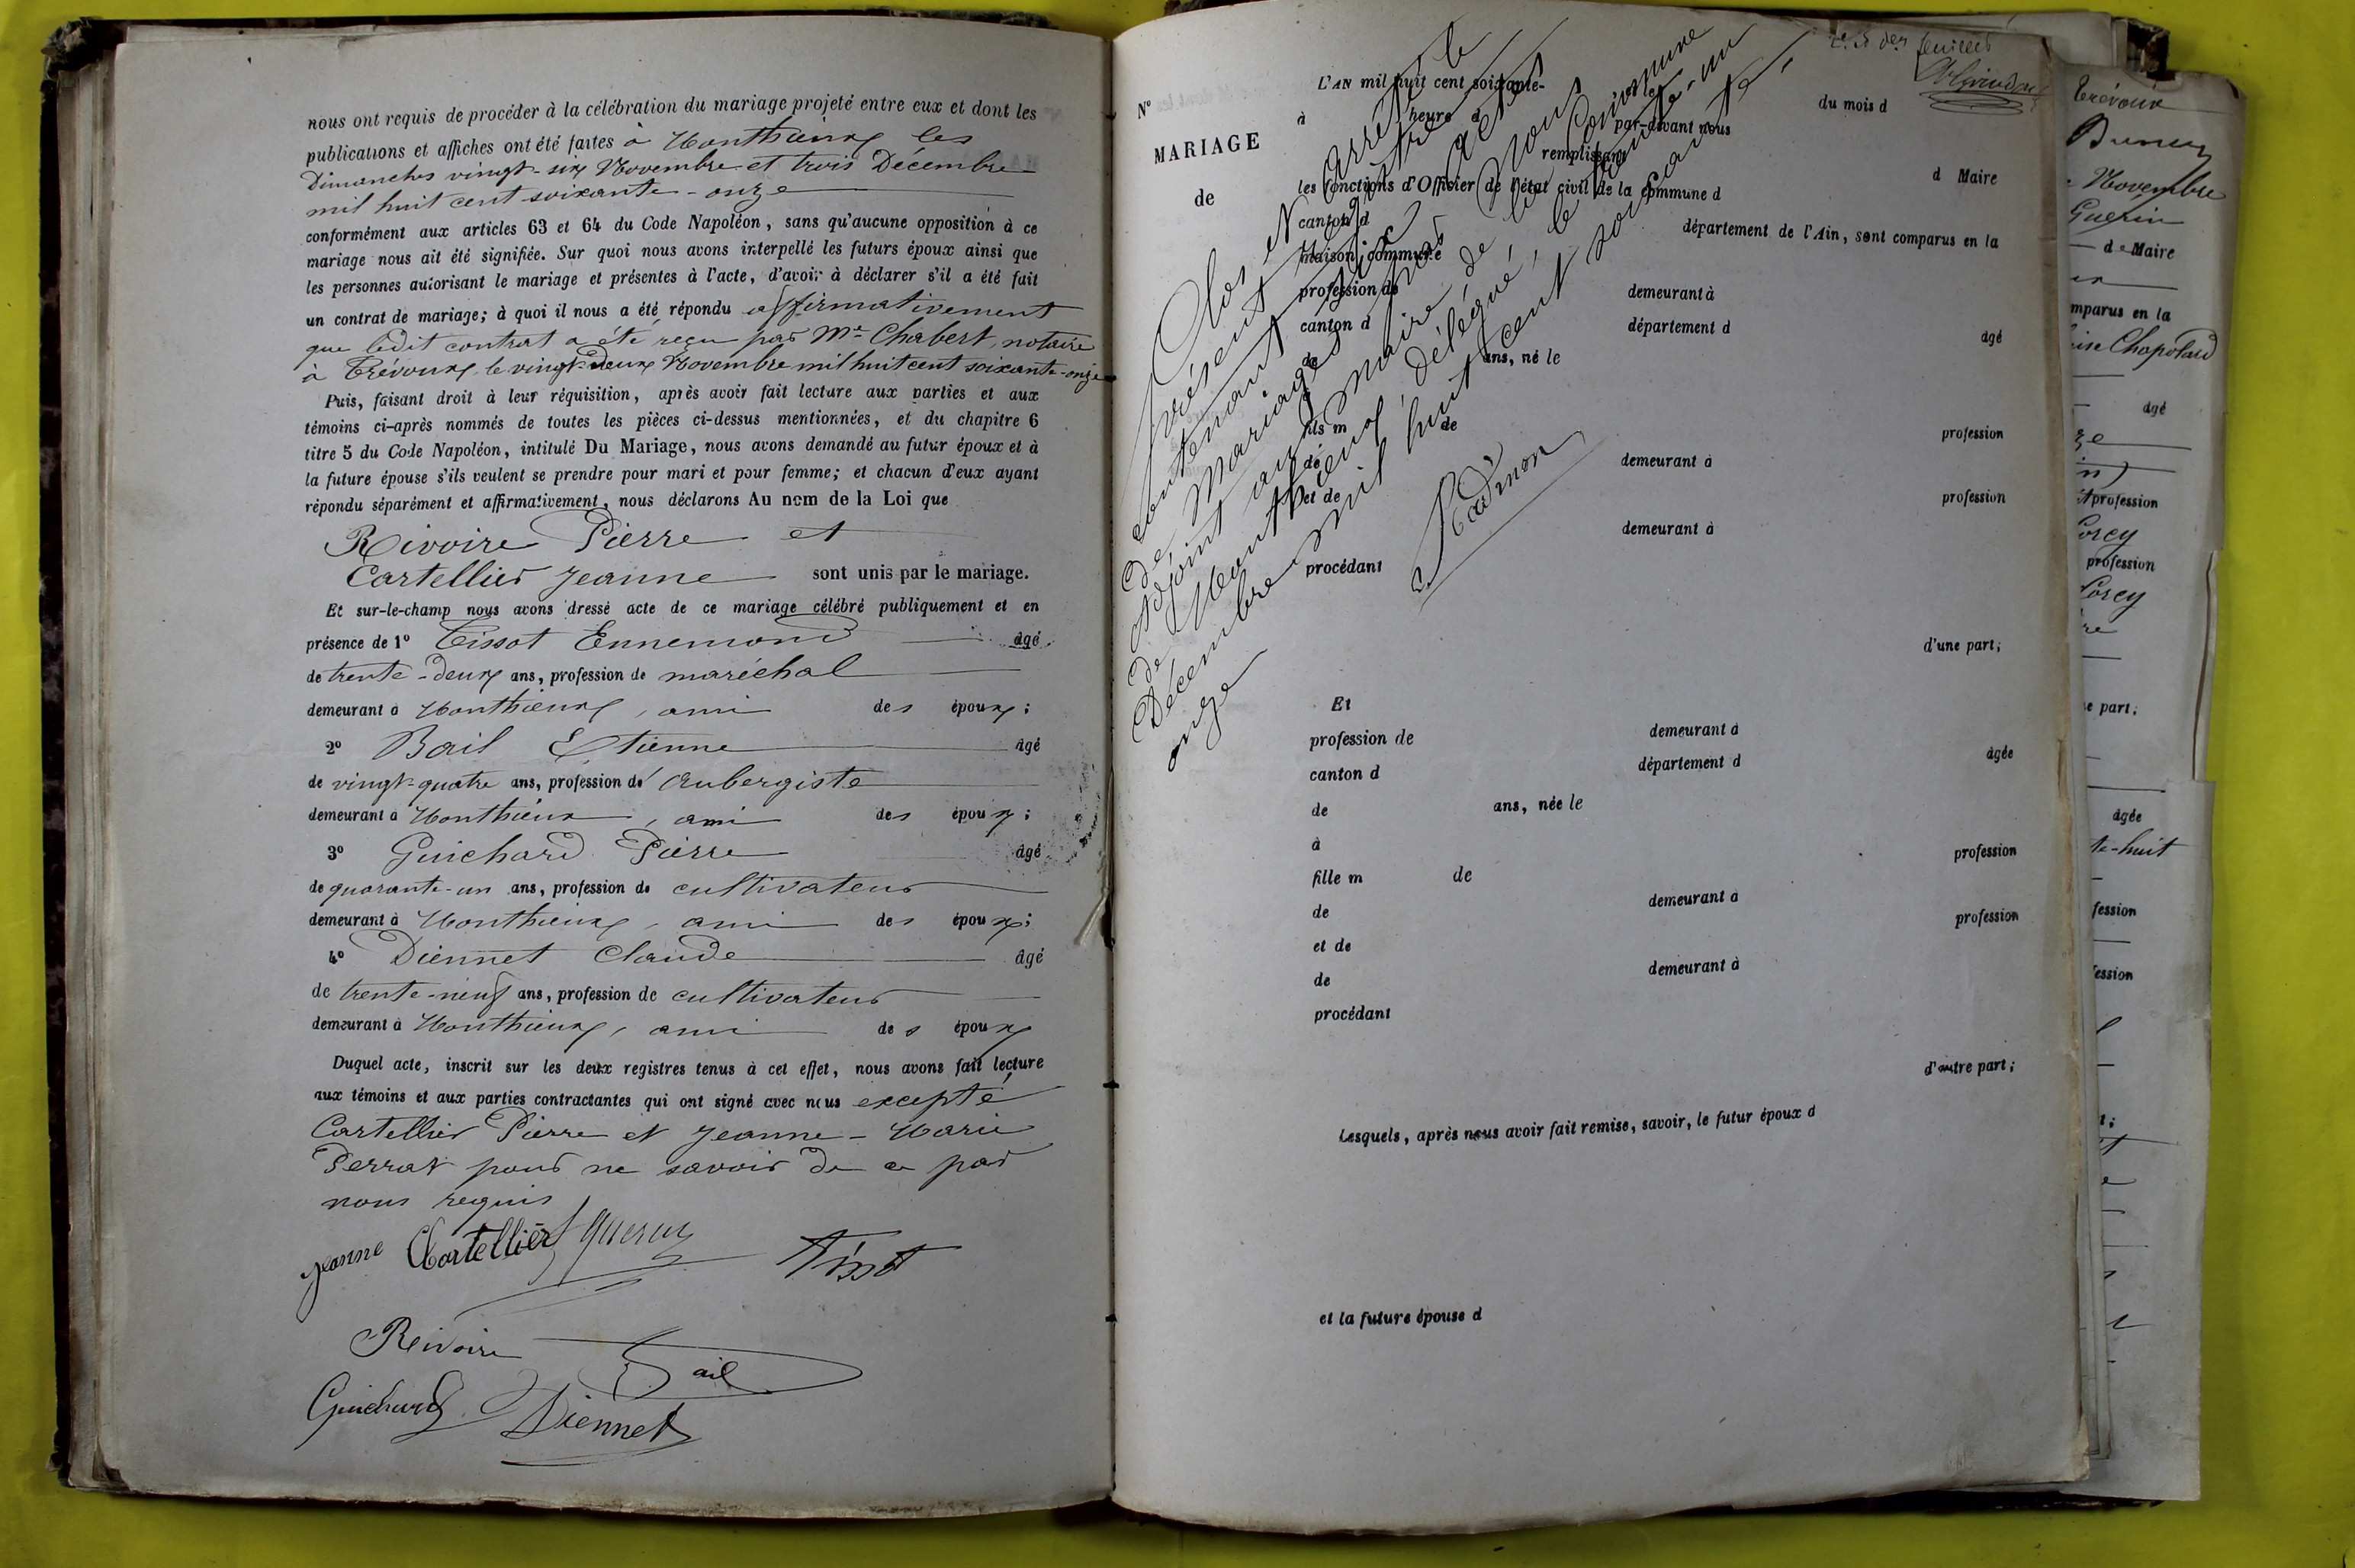 nous ont requis de procéder à la célébration du mariage projeté entre eux et dont les
publications et affiches ont été faites à Monthieux les
Dimanches vingt-six Novembre et trois Décembre
mil huit cent soixante-onze
conformément aux articles 63 et 64 du Code Napoléon, sans qu'aucune opposition à ce
mariage nous ait été signifiée. Sur quoi nous avons interpellé les futurs époux ainsi que
les personnes autorisant le mariage et présentes à l'acte, d'avoir à déclarer s'il a été fait
un contrat de mariage; à quoi il nous a été répondu affirmativement
que ledit contrat a été reçu par Me Chabert, notaire
à Trévoux le vingt-deux Novembre mil huit cent soixante-onze
Puis, faisant droit à leur réquisition, après avoir fait lecture aux parties et aux
témoins ci-après nommés de toutes les pièces ci-dessus mentionnées, et du chapitre 6
titre 5 du Code Napoléon, intitulé Du Mariage, nous avons demandé au futur époux et à
la future épouse s'ils veulent se prendre pour mari et pour femme; et chacun d'eux ayant
répondu séparément et affirmativement, nous déclarons Au nom de la Loi que
Rivoire Pierre et
Cartellier Jeanne sont unis par le mariage.
Et sur-le-champ nous avons dressé acte de ce mariage célébré publiquement et en
présence de 1º Tissot Ennemond âgé
de trente-deux ans, profession de maréchal
demeurant à Monthieux, ami des époux;
2º Bail Etienne âgé
de vingt-quatre ans, profession de Aubergiste
demeurant à Monthieux, ami des époux;
3º Guichard Pierre âgé
de quarante-un ans, profession de cultivateur
demeurant à Monthieux, ami des époux;
4º Diennet Claude âgé
de trente-neuf ans, profession de cultivateur
demeurant à Monthieux, ami des époux
Duquel acte, inscrit sur les deux registres tenus à cet effet, nous avons fait lecture
aux témoins et aux parties contractantes qui ont signé avec nous excepté
Cartellier Pierre et Jeanne-Marie
Perrat pour ne savoir de ce par
nous requis
Jeanne Cartellier Guerin Tissot
Rivoire Bail
Guichard Diennet
Nº
MARIAGE
de
L'AN mil huit cent soixante-
du mois d
à heure d
par-devant nous
remplissant
les fonctions d'Officier de l'état civil de la commune d
d Maire
canton d
département de l'Ain, sont comparus en la
Maison commune
profession de demeurant à
canton d département d
âgé
de ans, né le
à
fils m de
profession
de demeurant à
et de
profession
demeurant à
procédant
d'une part;
Clos et arrêté le
présent registre
contenant six actes
de Mariages par nous
Adjoint au Maire de la Commune
de Monthieux, délégué, le trente-un
Décembre mil huit cent soixante-
onze
Et
profession de demeurant à
canton d département d
âgée
de ans, née le
à
profession
fille m de
de demeurant à
profession
et de
de demeurant à
procédant
d'autre part;
Lesquels, après nous avoir fait remise, savoir, le futur époux d
et la future épouse d
Trévoux
Novembre
Guerin
d Maire
mparus en la
âgé
profession
profession
e part;
âgée
te-huit
fession
ession